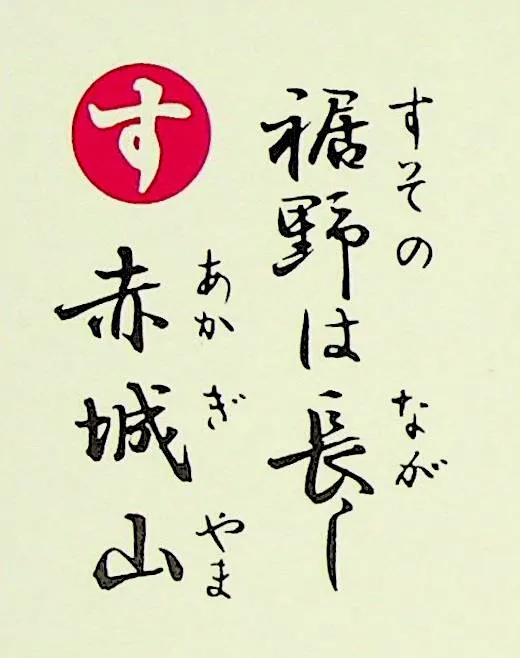 すその
裾野は長し
なが
す
あかぎやま
赤城山